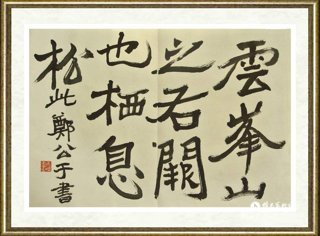 雲峯山
之右闕
也栖息
松此鄭公于書